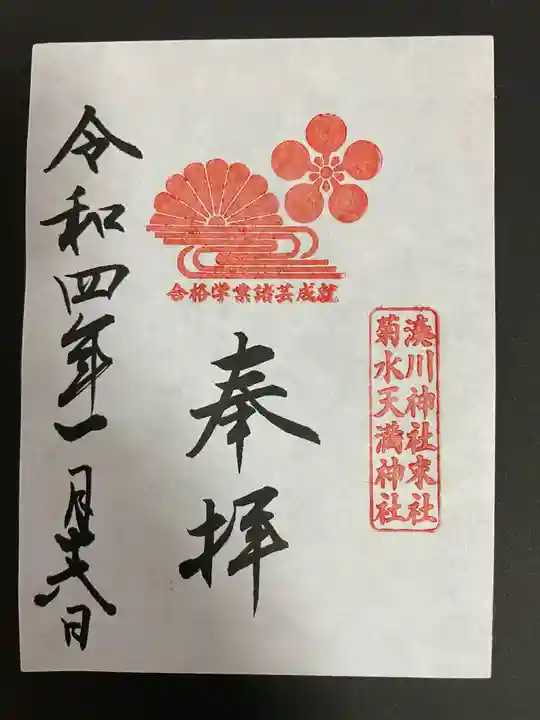 湊川神社末社
菊水天満神社
合格学業諸芸成就
奉拝
令和四年一月廿八日